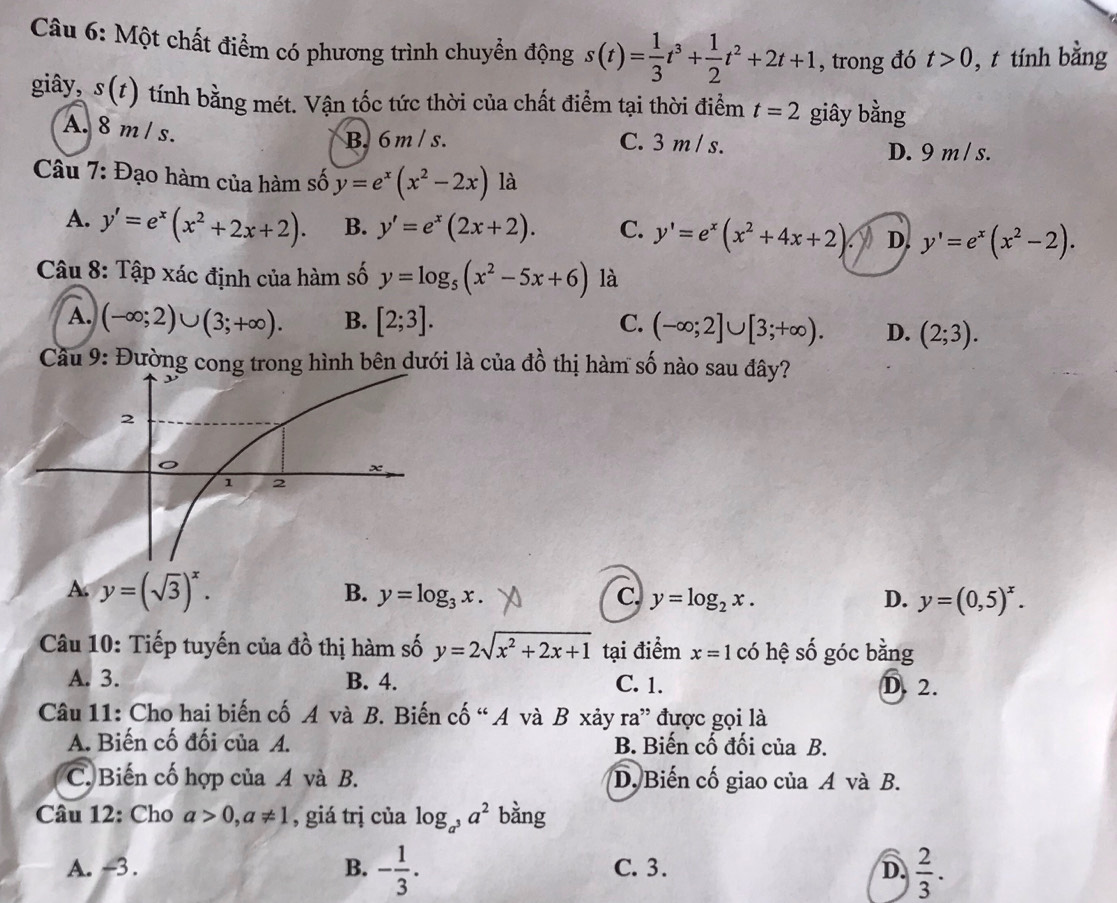 Câu 6: Một chất điểm có phương trình chuyển động s(t) = 1/3 t³ + 1/2 t² + 2t + 1, trong đó t > 0, t tính bằng
giây, s(t) tính bằng mét. Vận tốc tức thời của chất điểm tại thời điểm t = 2 giây bằng
A. 8 m / s. B. 6 m / s. C. 3 m / s. D. 9 m / s.
Câu 7: Đạo hàm của hàm số y = eˣ(x² − 2x) là
A. y' = eˣ(x² + 2x + 2). B. y' = eˣ(2x + 2). C. y' = eˣ(x² + 4x + 2). D. y' = eˣ(x² − 2).
Câu 8: Tập xác định của hàm số y = log₅(x² − 5x + 6) là
A. (−∞;2)∪(3;+∞). B. [2;3]. C. (−∞;2]∪[3;+∞). D. (2;3).
Câu 9: Đường cong trong hình bên dưới là của đồ thị hàm số nào sau đây?
y
2
O x
1 2
A. y = (√3)ˣ. B. y = log₃ x. C. y = log₂ x. D. y = (0,5)ˣ.
Câu 10: Tiếp tuyến của đồ thị hàm số y = 2√(x² + 2x + 1) tại điểm x = 1 có hệ số góc bằng
A. 3. B. 4. C. 1. D. 2.
Câu 11: Cho hai biến cố A và B. Biến cố “ A và B xảy ra” được gọi là
A. Biến cố đối của A. B. Biến cố đối của B.
C. Biến cố hợp của A và B. D. Biến cố giao của A và B.
Câu 12: Cho a > 0, a ≠ 1, giá trị của log_{a³} a² bằng
A. −3. B. −1/3. C. 3. D. 2/3.